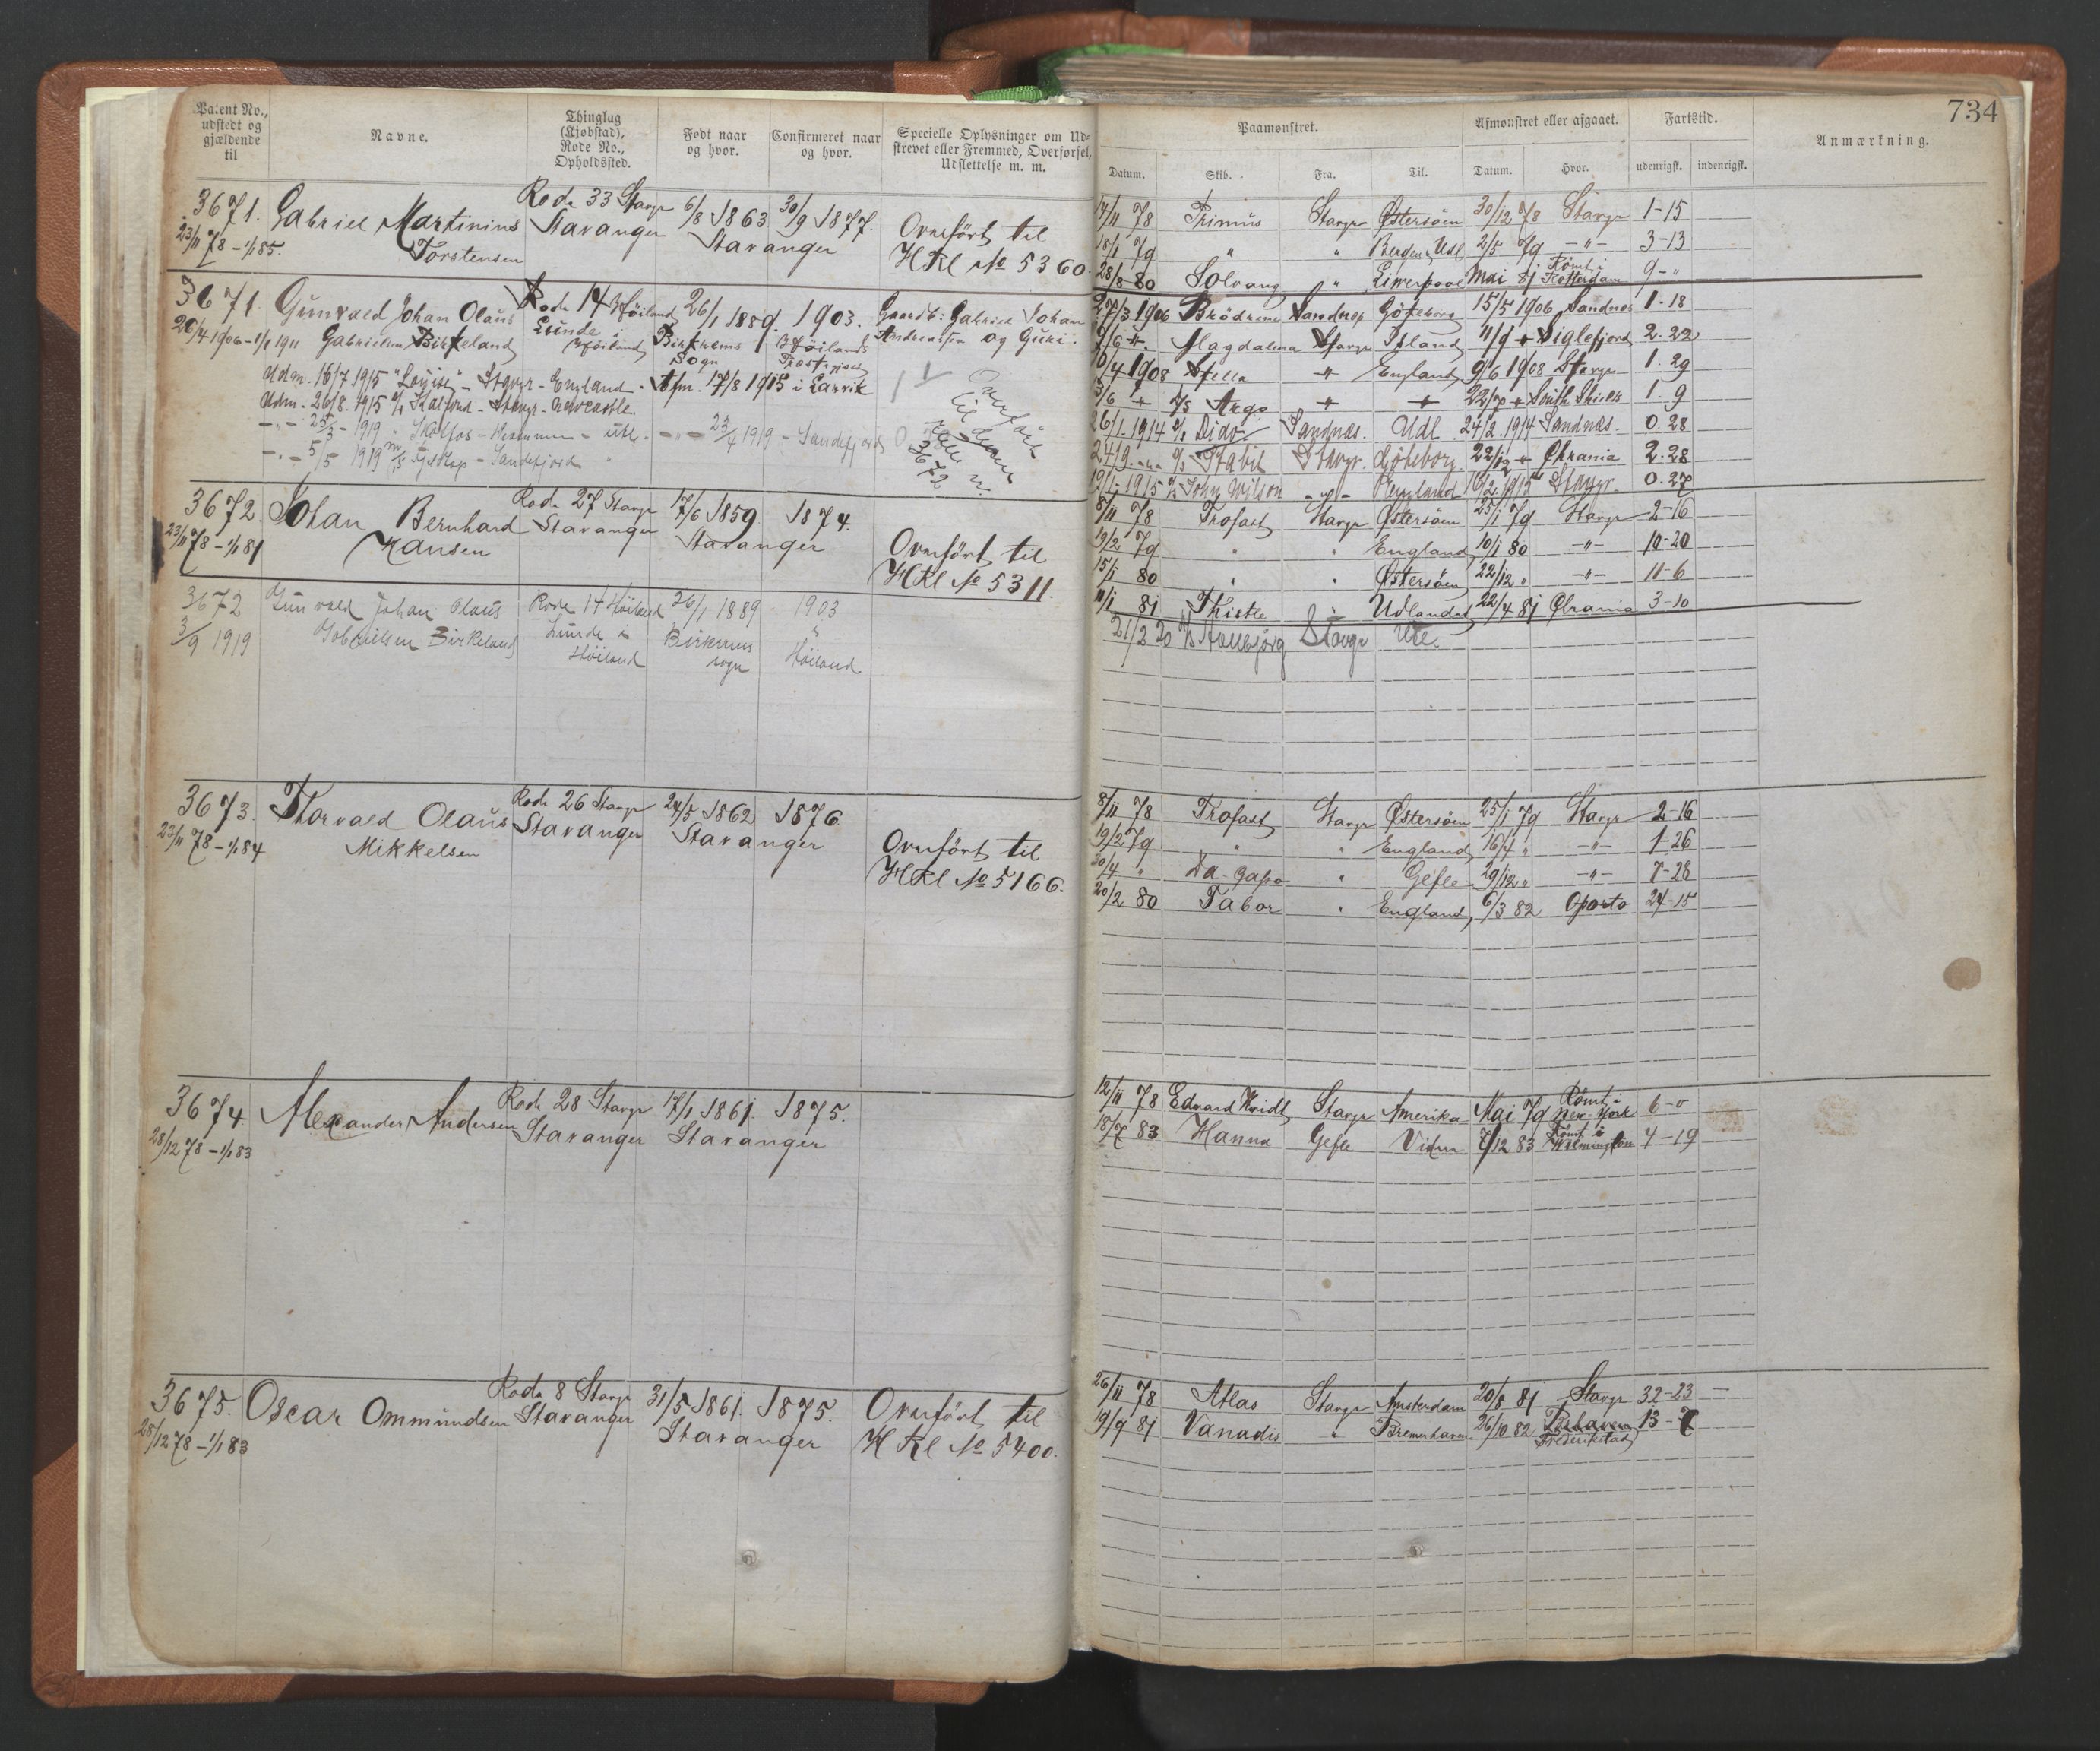 Patent No., udstedt og gjældende til
Navne.
Thinglag (Kjøbstad), Rode No., Opholdssted.
Født naar og hvor.
Confirmeret naar og hvor.
Specielle Oplysninger om Udstrevet eller Fremmed, Overførsel, Udslettelse m. m.
3671. Gabriel Martinius Rode 33 Stavgr 6/8 1863 30/9 1877. Overført til
23/11 78 – 1/1 85. Torstensen Stavanger Stavanger HKl No 5360.
3671. Gunvald Johan Olaus Rode 14 Høiland 26/1 1889. 1903. Gaardb: Gabriel Johan
20/4 1906 – 1/1 1911 Gabrielsen Birkeland Lunde i Høiland Birkrems Sogn Høilands Præstegjeld Andreassen og Guri.
Udm. 16/7 1915 "Louise" – Stavgr – England. Afm. 17/8 1915 i Larvik
Udm. 26/8. 1915 – Stavgr – Newcastle.
–"– 25/3 – 1919 – Skotfos – – utl. –"– 23/4 1919 – Sandefjord
–"– 5/5 1919 – Sandefjord
Overført til No. 3672
3672. Johan Bernhard Rode 27 Stavgr 17/6 1859. 1874.
23/11 78 – 1/1 81 Hansen Stavanger Stavanger Overført til
HKl No 5311.
3672 Gunvald Johan Olaus Rode 14 Høiland 26/1 1889 1903
3/9 1919 Gabrielsen Birkeland Lunde i Høiland Birkrems sogn Høiland
3673. Thorvald Olaus Rode 26 Stavgr 24/5 1862 1876
23/11 78 – 1/1 84 Mikkelsen Stavanger Stavanger Overført til
HKl No 5166.
3674 Alexander Andersen Rode 28 Stavgr 17/1 1861. 1875.
28/12 78 – 1/1 83 Stavanger Stavanger
3675. Oscar Ommundsen Rode 8 Stavgr 31/5 1861. 1875. Overført til
28/12 78 – 1/1 83 Stavanger Stavanger HKl No 5400.
734
Paamønstret. Afmønstret eller afgaaet. Fartstid. Anmærkning.
Datum. Skib. Fra. Til. Datum. Hvor. udenrigsk. indenrigsk.
14/11 78 Primus Stavgr Østersøen 30/12 78 Stavgr 1–15
18/1 79 " " Bergen, Udl 2/5 79 –"– 3–13
28/8 80 Solvang " Liverpool Mai 81 Rømt i Rotterdam 9–"
27/3 1906 Brødrene Sandnes Gøteborg 15/5 1906 Sandnes 1–18
Magdalena Stavgr Island 11/9 " Siglefjord 2.22
10/4 1908 Stella " England 9/6 1908 Stavgr 1.29
3/6 " Argo " " 22/7 " South Shields 1.9
26/1. 1914 Dido Sandnæs. Udl. 24/2. 1914 Sandnæs. 0.28
24/9. Stabil Stavgr. Gøteborg. 22/12 " Chrania 2.28
19/1. 1915 John Wilson –"– England 16/2. 1915 Stavgr. 0.27
8/11 78 Trofast Stavgr Østersøen 25/1 79 Stavgr 2–16
19/2 79 " " England 10/1 80 –"– 10–20
15/1 80 " " Østersøen 22/12 " –"– 11–6
11/1 81 Thistle " Udlandet 22/4 81 Chrania 3–10
21/2 20 Stavgr Utl.
8/11 78 Trofast Stavgr Østersøen 25/1 79 Stavgr 2–16
19/2 79 " " England 16/4 " –"– 1–26
30/4 " Da-Gapo " Gefle 29/12 " –"– 7–28
20/2 80 Tabor " England 6/3 82 Oporto 24–15
12/11 78 Edvard Hvidt Stavgr Amerika Mai 79 Rømt i New-York 6–0
18/7 83 Hanna Gefle Videre 7/12 83 Rømt i Wilmington 4–19
26/11 78 Atlas Stavgr Amsterdam 20/8 81 Stavgr 32–23 –
19/9 81 Vanadis " Bremerhaven 26/10 82 Frederikstad 13–7